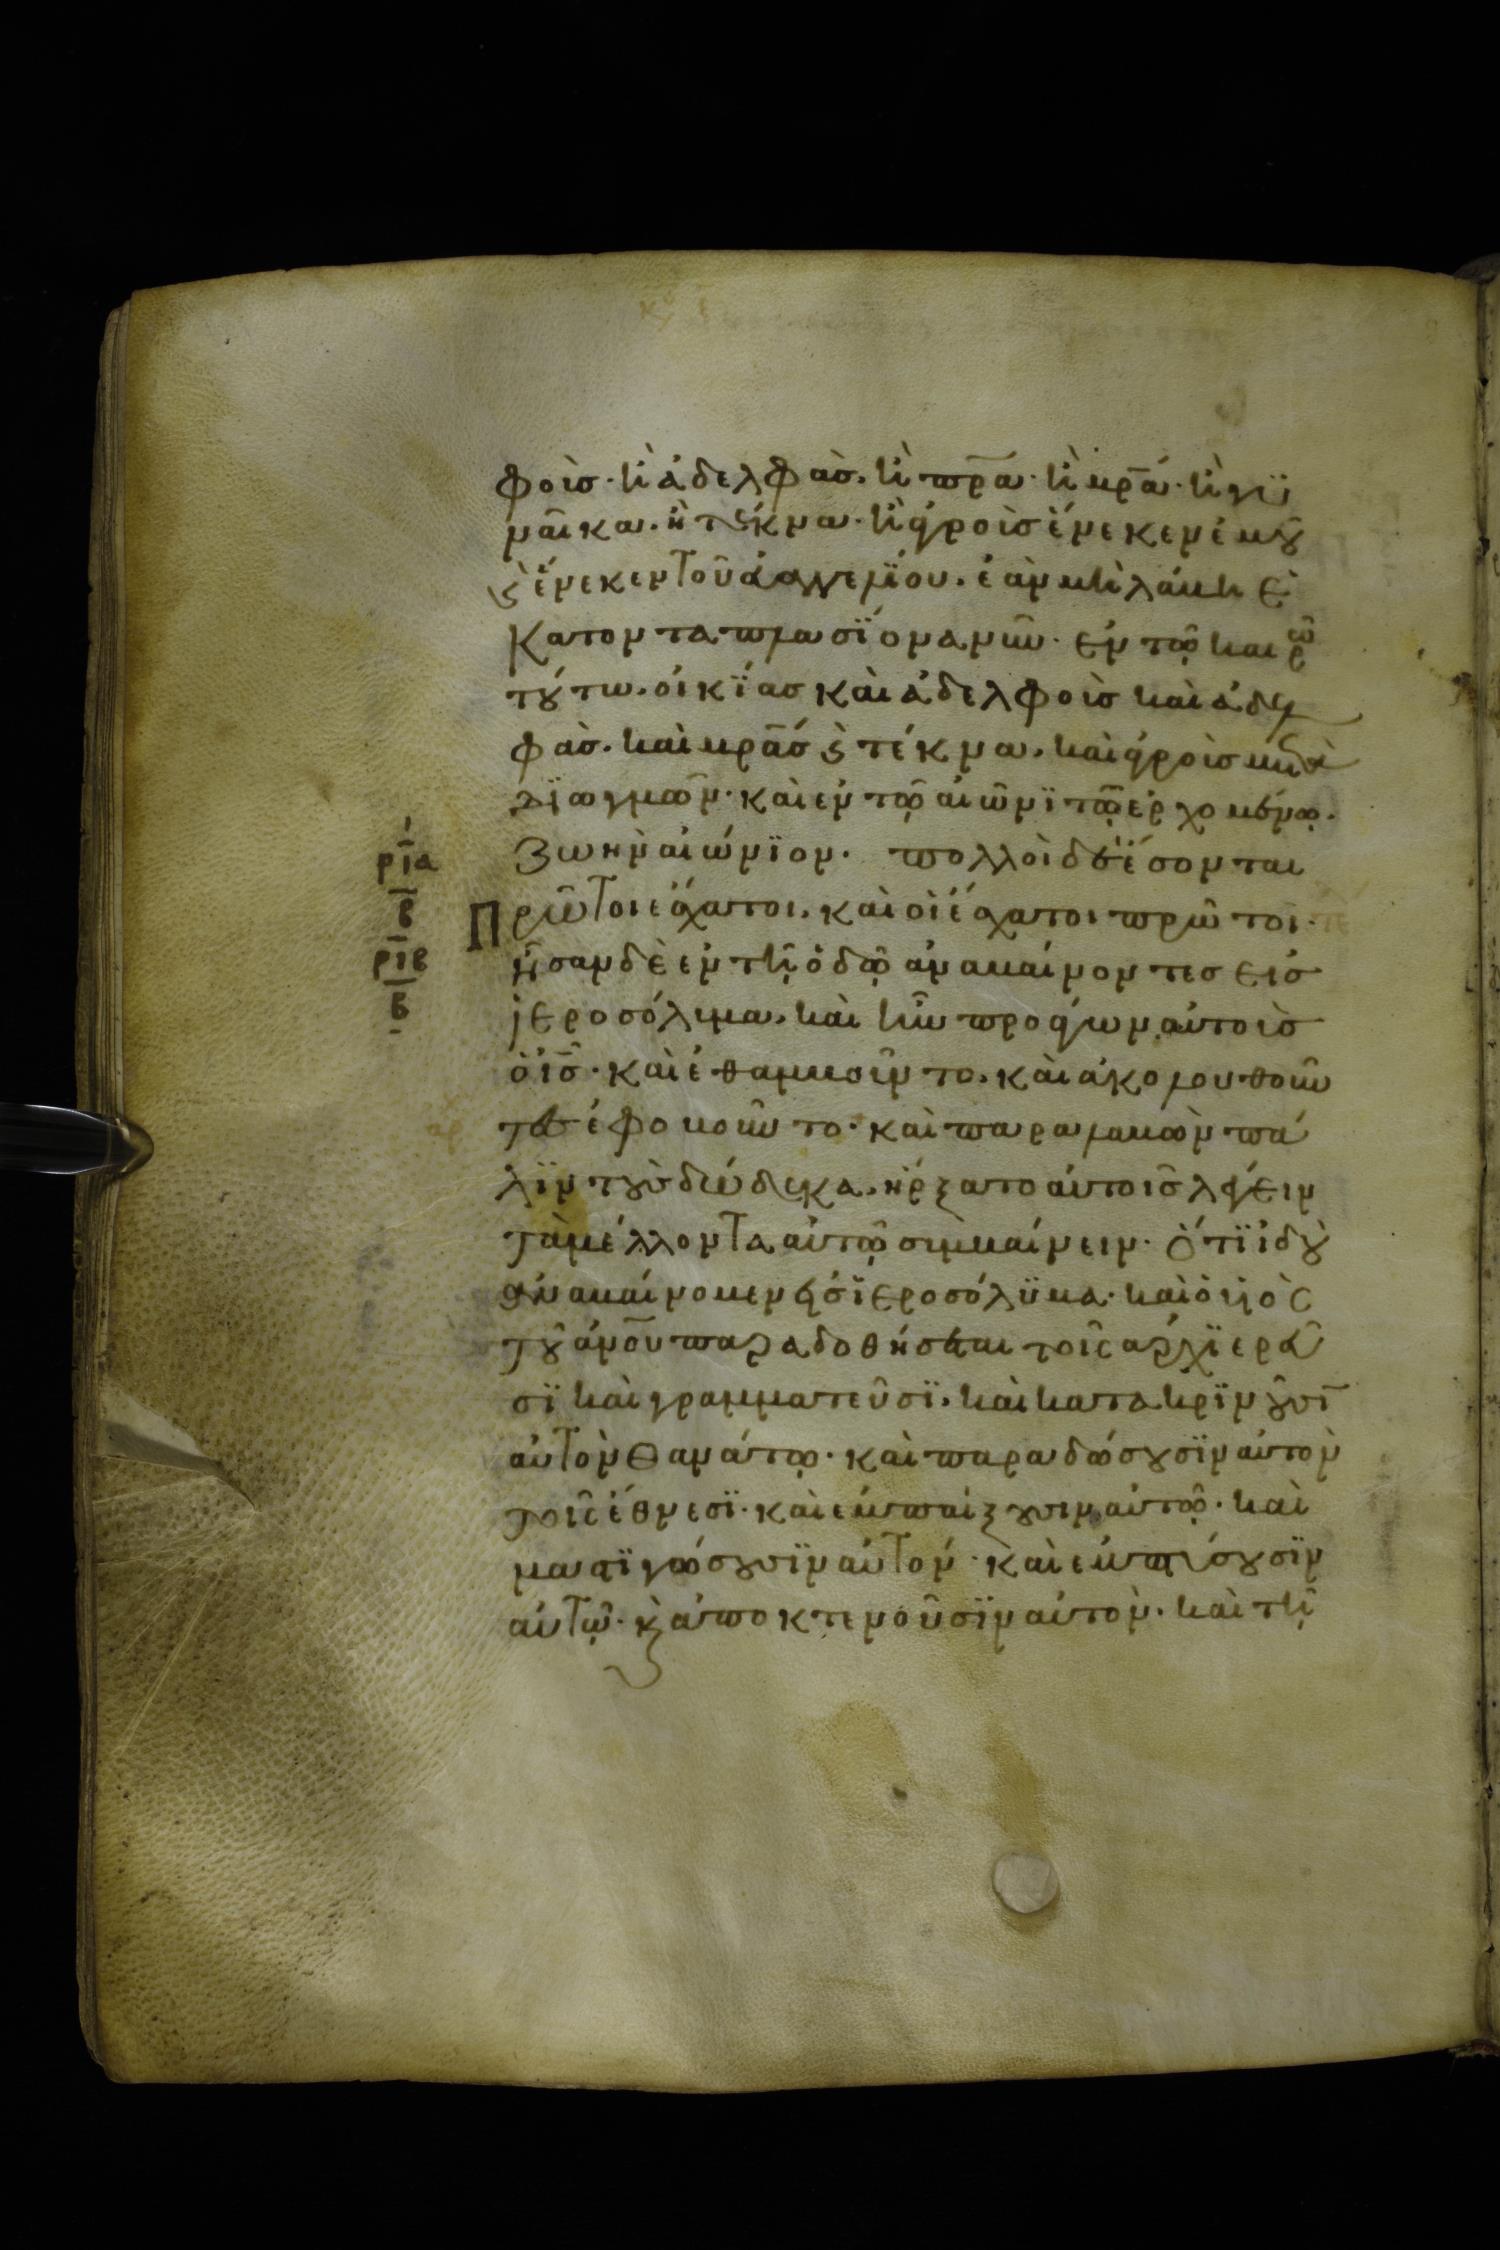 φοὺσ· ἢ ἀδελφὰσ. ἢ πρ̅α· ἢ μρ̅α· ἢ γυ
ναῖκα. ἢ τέκνα. ἢ ἀγροὺσ ἕνεκεν ἐμοῦ
ϛ ἕνεκεν τοῦ εὐαγγελίου. ἐὰν μὴ λάβη ἑ
κατονταπλασίονα νῦν· ἐν τῶ καιρῶ
τούτω. οἰκίασ καὶ ἀδελφοὺσ καὶ ἀδελ
φὰσ. καὶ μρ̅ασ ϛ τέκνα. καὶ ἀγροὺσ μετὰ
διωγμῶν· καὶ ἐν τῶ αἰῶνϊ τῶ ἐρχομένω.
ζωὴν αἰώνϊον. πολλοὶ δὲ ἔσονται
ρια
β
πρῶτοι ἔσχατοι. καὶ οἱ ἔσχατοι πρῶτοι·
ριβ
β
ἦσαν δὲ ἐν τῆ ὁδῶ ἀναβαίνοντεσ εἰσ
ἱεροσόλυμα. καὶ ἦν προάγων αὐτοὺσ
ὁ ισ̅· καὶ ἐθαμβοῦντο. καὶ ἀκολουθοῦν
τεσ ἐφοβοῦντο· καὶ παραλαβὼν πά
λϊν τοὺσ δώδεκα. ἤρξατο αὐτοῖσ λέγειν
τὰ μέλλοντα αὐτῶ συμβαίνειν· ὅτϊ ἰδοὺ
ἀναβαίνομεν εἰσ ϊεροσόλϋμα· καὶ ὁ υἱὸσ
τοῦ ἀνο̅υ παραδοθήσεται τοῖσ ἀρχϊερεῦ
σϊ καὶ γραμματεῦσϊ. καὶ κατακρϊνοῦσϊ
αὐτὸν θανάτω· καὶ παραδώσουσϊν αὐτὸν
τοῖσ ἔθνεσϊ· καὶ ἐμπαίξουσιν αὐτῶ· καὶ
μαστϊγώσουσϊν αὐτόν· καὶ ἐμπτύσουσϊν
αὐτῶ· κ ἀποκτενοῦσϊν αὐτὸν. καὶ τῆ